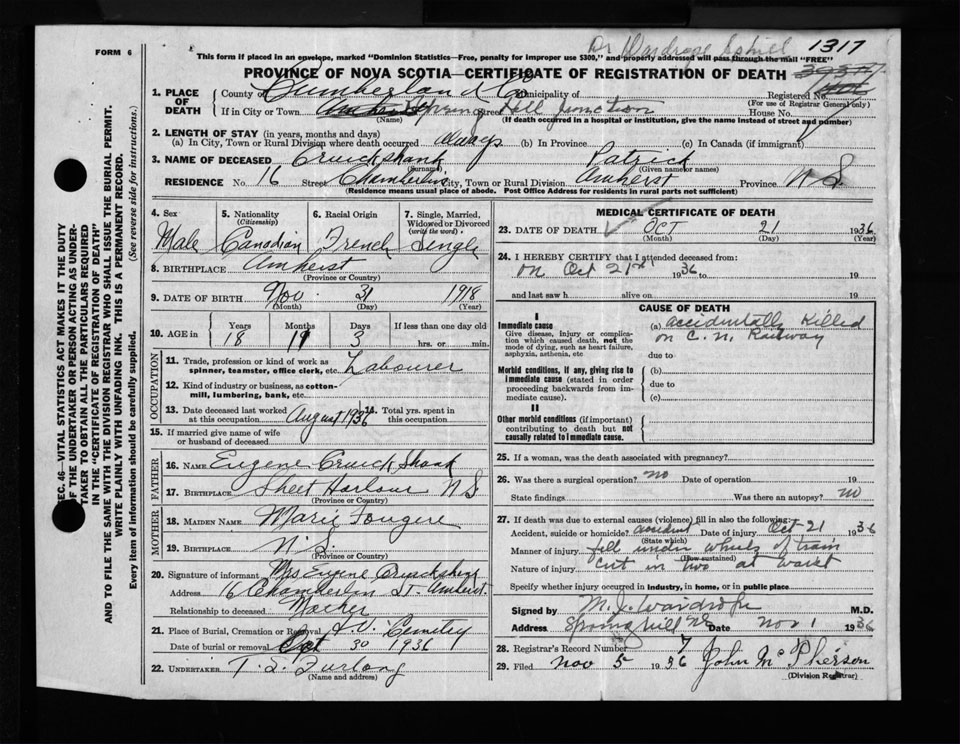 Dr Wardrope S'hill 1317
FORM 6
This form if placed in an envelope, marked "Dominion Statistics—Free, penalty for improper use $300," and properly addressed will pass through the mail "FREE"
PROVINCE OF NOVA SCOTIA—CERTIFICATE OF REGISTRATION OF DEATH
1. PLACE OF DEATH
County of Cumberland Co Municipality of Registered No.
(For use of Registrar General only)
If in City or Town Spring Hill Junction Street House No.
(Name) (If death occurred in a hospital or institution, give the name instead of street and number)
2. LENGTH OF STAY (in years, months and days)
(a) In City, Town or Rural Division where death occurred always (b) In Province (c) In Canada (if immigrant)
3. NAME OF DECEASED Cruickshank Patrick
(Surname) (Given name or names)
RESIDENCE No. 16 Street Chamberlin City, Town or Rural Division Amherst Province N S
(Residence means usual place of abode. Post Office Address for residents in rural parts not sufficient)
4. Sex Male
5. Nationality (Citizenship) Canadian
6. Racial Origin French
7. Single, Married, Widowed or Divorced (write the word) Single
8. BIRTHPLACE Amherst
(Province or Country)
9. DATE OF BIRTH Nov. 31 1918
(Month) (Day) (Year)
10. AGE in Years Months Days If less than one day old
18 11 3 hrs. or min.
OCCUPATION
11. Trade, profession or kind of work as spinner, teamster, office clerk, etc. Labourer
12. Kind of industry or business, as cotton-mill, lumbering, bank, etc.
13. Date deceased last worked at this occupation August 1936
14. Total yrs. spent in this occupation
15. If married give name of wife or husband of deceased
FATHER
16. NAME Eugene Cruickshank
17. BIRTHPLACE Sheet Harbour N S
(Province or Country)
MOTHER
18. MAIDEN NAME Marie Fougere
19. BIRTHPLACE N. S.
(Province or Country)
20. Signature of informant Mrs Eugene Cruickshank
Address 16 Chamberlin St. Amherst.
Relationship to deceased Mother
21. Place of Burial, Cremation or Removal Cemetery
Date of burial or removal Oct 30 1936
22. UNDERTAKER T. S. Furlong
(Name and address)
MEDICAL CERTIFICATE OF DEATH
23. DATE OF DEATH OCT 21 1936
(Month) (Day) (Year)
24. I HEREBY CERTIFY that I attended deceased from:
on Oct 21st 1936 to 19
and last saw h alive on 19
CAUSE OF DEATH
I
Immediate cause
Give disease, injury or complication which caused death, not the mode of dying, such as heart failure, asphyxia, asthenia, etc
(a) accidentally killed
on C. N. Railway
due to
Morbid conditions, if any, giving rise to immediate cause (stated in order proceeding backwards from immediate cause).
(b)
due to
(c)
II
Other morbid conditions (if important) contributing to death but not causally related to immediate cause.
25. If a woman, was the death associated with pregnancy?
26. Was there a surgical operation? no Date of operation 19
State findings Was there an autopsy? no
27. If death was due to external causes (violence) fill in also the following:
Accident, suicide or homicide? accident Date of injury Oct 21 1936
(State which)
Manner of injury fell under wheels of train
(How sustained)
Nature of injury cut in two at waist
Specify whether injury occurred in industry, in home, or in public place
Signed by M. J. Wardrope M.D.
Address Springhill NS Date Nov 1 1936
28. Registrar's Record Number 7
29. Filed Nov 5 1936 John McPherson
(Division Registrar)
SEC. 46—VITAL STATISTICS ACT MAKES IT THE DUTY OF THE UNDERTAKER OR PERSON ACTING AS UNDERTAKER TO OBTAIN ALL THE PARTICULARS REQUIRED IN THE "CERTIFICATE OF REGISTRATION OF DEATH" AND TO FILE THE SAME WITH THE DIVISION REGISTRAR WHO SHALL ISSUE THE BURIAL PERMIT.
WRITE PLAINLY WITH UNFADING INK. THIS IS A PERMANENT RECORD.
Every item of information should be carefully supplied. (See reverse side for instructions.)